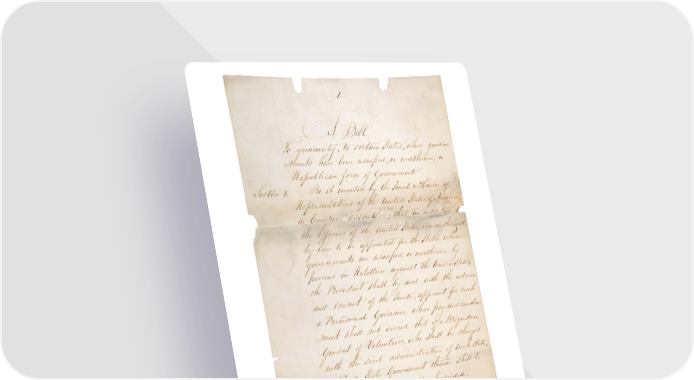 1
A Bill
To guaranty, to certain States, whose govern
ments have been usurped, or overthrown, a
Republican form of Government
Section 1. Be it enacted by the Senate & House of
Representatives of the United States of America
in Congress assembled, that in
the of the United States
by law to be appointed for the States whose
governments are usurped or overthrown by
persons in Rebellion against the United States,
the President shall by and with the advice
and consent of the Senate, appoint for each
a Provisional Governor whose pay and emolu
ment shall not exceed that of a Brigadier
General of Volunteers, who shall be charged
with the civil administration of such State,
a State Government therein shall